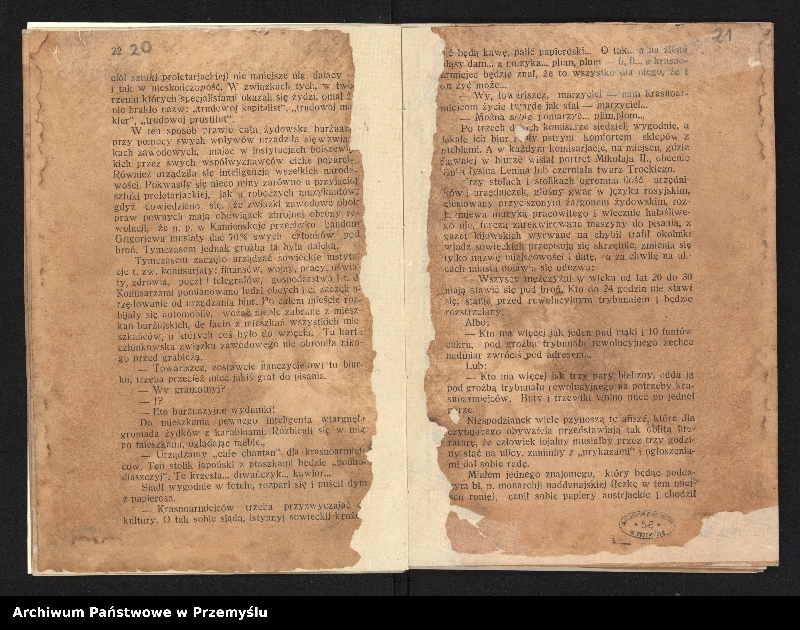 22 20
ciół sztuki proletarjackiej) nie mniejsze ulg dający
i tak w nieskończoność. W związkach tych, w two
rzeniu których specjalistami okazali się żydzi, omal ż
nie brakło nazw: „trudowoj kapitalist", „trudowoj ma
kler", „trudowoj prostitut".
W ten sposób prawie cała żydowska burżuaz
przy pomocy swych wpływów urządziła się w związ-
kach zawodowych, mając w instytucjach bolszewic
kich przez swych współwyznawców ciche poparcie.
Również urządziła się inteligencja wszelkich narodo-
wości. Pokwasiły się nieco miny zarówno u przyjaciół
sztuki proletarjackiej, jak u roboczych muzykantów,
gdyż dowiedziano się, że związki zawodowe obok
praw pewnych mają obowiązek zbrojnej obrony re-
wolucji, że n. p. w Kamieńskoje przeciwko bandom
Grigorjewa musiały dać 50% swych członków pod
broń. Tymczasem jednak groźba ta była daleką.
Tymczasem zaczęto urządzać sowieckie instytu-
cje t. zw. komisarjaty: finansów, wojny, pracy, oświa
ty, zdrowia, poczt i telegrafów, gospodarstwa i t. d.
Komisarzami pomianowano ludzi obcych i ci zaczęli u-
rzędowanie od urządzania biur. Po całem mieście roz-
bijały się automobile, wożąc meble zabrane z miesz-
kań burżujskich, de facto z mieszkań wszystkich mie
szkańców, u których coś było do wzięcia. Tu karta
członkowska związku zawodowego nie obroniła niko-
go przed grabieżą.
— Towariszcz, zostawcie nauczycielowi to biur-
ko, trzeba przecież mieć jakiś grat do pisania.
— Wy gramotnyj?
— !?
— Eto burżuazyjne wydumki!
Do mieszkania pewnego inteligenta wtargnęła
gromada żydków z karabinami. Rozbiegli się w mig
po mieszkaniu, oglądając meble.
— Urządzamy „cafe chantan" dla krasnoarmiej-
ców. Ten stolik japoński z ptaszkami będzie „podho-
diaszczyj". Te krzesła... diwańczyk... kawior...
Siadł wygodnie w fotelu, rozparł się i puścił dym
z papierosa.
— Krasnoarmiejców trzeba przyzwyczajać
kultury. O tak sobie siądą, istynnyj sowieckij
21
ć będą kawę, palić papieroski... O tak... a na ziemi
dam... a muzyka... plim, plum — li, li... a krasno-
armiejec będzie znał, że to wszystko dla niego, że i
on żyć może...
— Wy, towariszcz, marzyciel — nam krasnoar-
miejcom życie twarde jak stal — marzyciel...
— Można sobie pomarzyć... plim, plom...
Po trzech dniach komisarze siedzieli wygodnie, a
lokale ich biur były pstrym komfortem sklepów z
meblami. A w każdym komisarjacie, na miejscu, gdzie
dawniej w biurze wisiał portret Mikołaja II., obecnie
łysina Lenina lub czerniała twarz Trockiego.
Przy stołach i stolikach ogromna ilość urzędni-
ków i urzędniczek, głośny gwar w języku rosyjskim,
cieniowany przyciszonym żargonem żydowskim, roz-
brzmiewa muzyką pracowitego i wiecznie hałaśliwe-
go ula, furczą zarekwirowane maszyny do pisania, z
gazet kijowskich wyrwane na chybił trafił okólniki
władz sowieckich przepisują się skrzętnie, zmienia się
tylko nazwę miejscowości i datę, a za chwilę na uli-
cach miasta pojawia się odezwa:
— Wszyscy mężczyźni w wieku od lat 20 do 30
mają stawić się pod broń. Kto do 24 godzin nie stawi
się, stanie przed rewolucyjnym trybunałem i będzie
rozstrzelany.
Albo:
— Kto ma więcej jak jeden pud mąki i 10 funtów
cukru, pod groźbą trybunału rewolucyjnego zechce
nadmiar zwrócić pod adresem...
Lub:
— Kto ma więcej jak trzy pary bielizny, odda ją
pod groźbą trybunału rewolucyjnego na potrzeby kra-
snoarmiejców. Buty i trzewiki wolno mieć po jednej
parze.
Niespodzianek wiele przynoszą te afisze, które dla
czytającego obywatela przedstawiają tak obfitą lite-
raturę, że człowiek lojalny musiałby przez trzy godzi-
ny stać na ulicy, zanimby z „prykazami" i ogłoszenia-
mi dał sobie radę.
Miałem jednego znajomego, który będąc podda-
nym bł. p. monarchji naddunajskiej (łezkę w tem miej-
scu ronię), cenił sobie papiery austrjackie i chodził
56
W PRZEMYŚLU
Archiwum Państwowe w Przemyślu